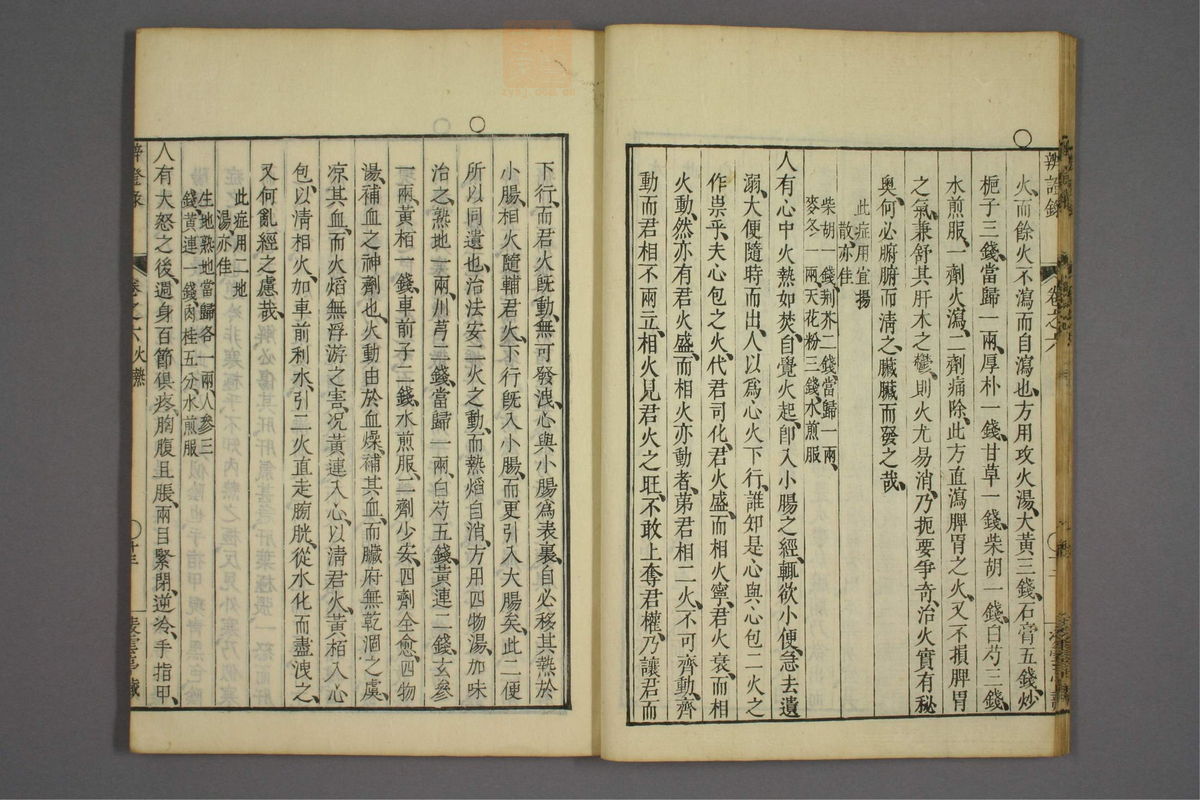 火、而餘火不瀉而自瀉也、方用攻火湯、大黃三錢、石膏五錢、炒
梔子三錢、當歸一兩、厚朴一錢、甘草一錢、柴胡一錢、白芍三錢、
水煎服、一劑火瀉、二劑痛除、此方直瀉脾胃之火、又不損脾胃
之氣、兼舒其肝木之鬱、則火尤易消、乃扼要爭奇、治火實有秘
奧、何必腑腑而清之、臟臟而發之哉、
此症用宜揚
散亦佳
柴胡一錢、荆芥二錢、當歸一兩、
麥冬一兩、天花粉三錢、水煎服
人有心中火熱如焚、自覺火起、卽入小腸之經、輒欲小便、急去遺
溺、大便隨時而出、人以爲心火下行、誰知是心與心包二火之
作祟乎、夫心包之火、代君司化、君火盛而相火寧、君火衰而相
火動、然亦有君火盛、而相火亦動者、第君相二火、不可齊動、齊
動而君相不兩立、相火見君火之旺、不敢上奪君權、乃讓君而
下行、而君火旣動、無可發洩、心與小腸爲表裏、自必移其熱於
小腸、相火隨輔君火、下行旣入小腸、而更引入大腸矣、此二便
所以同遺也、治法安二火之動、而熱熖自消、方用四物湯加味
治之、熟地一兩、川芎二錢、當歸一兩、白芍五錢、黃連二錢、玄參
一兩、黃栢一錢、車前子二錢、水煎服、二劑少安、四劑全愈、四物
湯、補血之神劑也、火動由於血燥、補其血、而臟府無乾涸之虞、
凉其血、而火熖無浮游之害、况黃連入心、以清君火、黃栢入心
包、以清相火、加車前利水、引二火直走膀胱、從水化而盡洩之、
又何亂經之慮哉、
此症用二地
湯亦佳
生地熟地當歸各一兩人參三
錢黃連一錢肉桂五分水煎服
人有大怒之後、週身百節俱疼、胸腹且脹、兩目緊閉、逆冷、手指甲
辨證錄
卷之六火癥